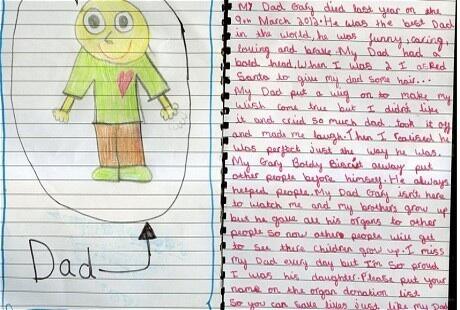 Dad
My Dad Gary died last year on the
9th March 2012. He was the best Dad
in the world, he was funny, caring,
loving and brave. My Dad had a
bold head, When I was 2 I asked
Santa to give my dad some hair...
My Dad put a wig on to make my
wish come true but I didn't like
it and cried so much dad took it off
and made me laugh. Then I realised he
was perfect just the way he was.
My Gary Baldy Biscuit always put
other people before himself. He always
helped people. My Dad Gary isn't here
to watch me and my brothers grow up
but he gave all his organs to other
people so now other people will get
to see there children grow up. I miss
My Dad every day but I'm so proud
I was his daughter. Please put your
name on the organ donation list
So you can save lives just like my Dad